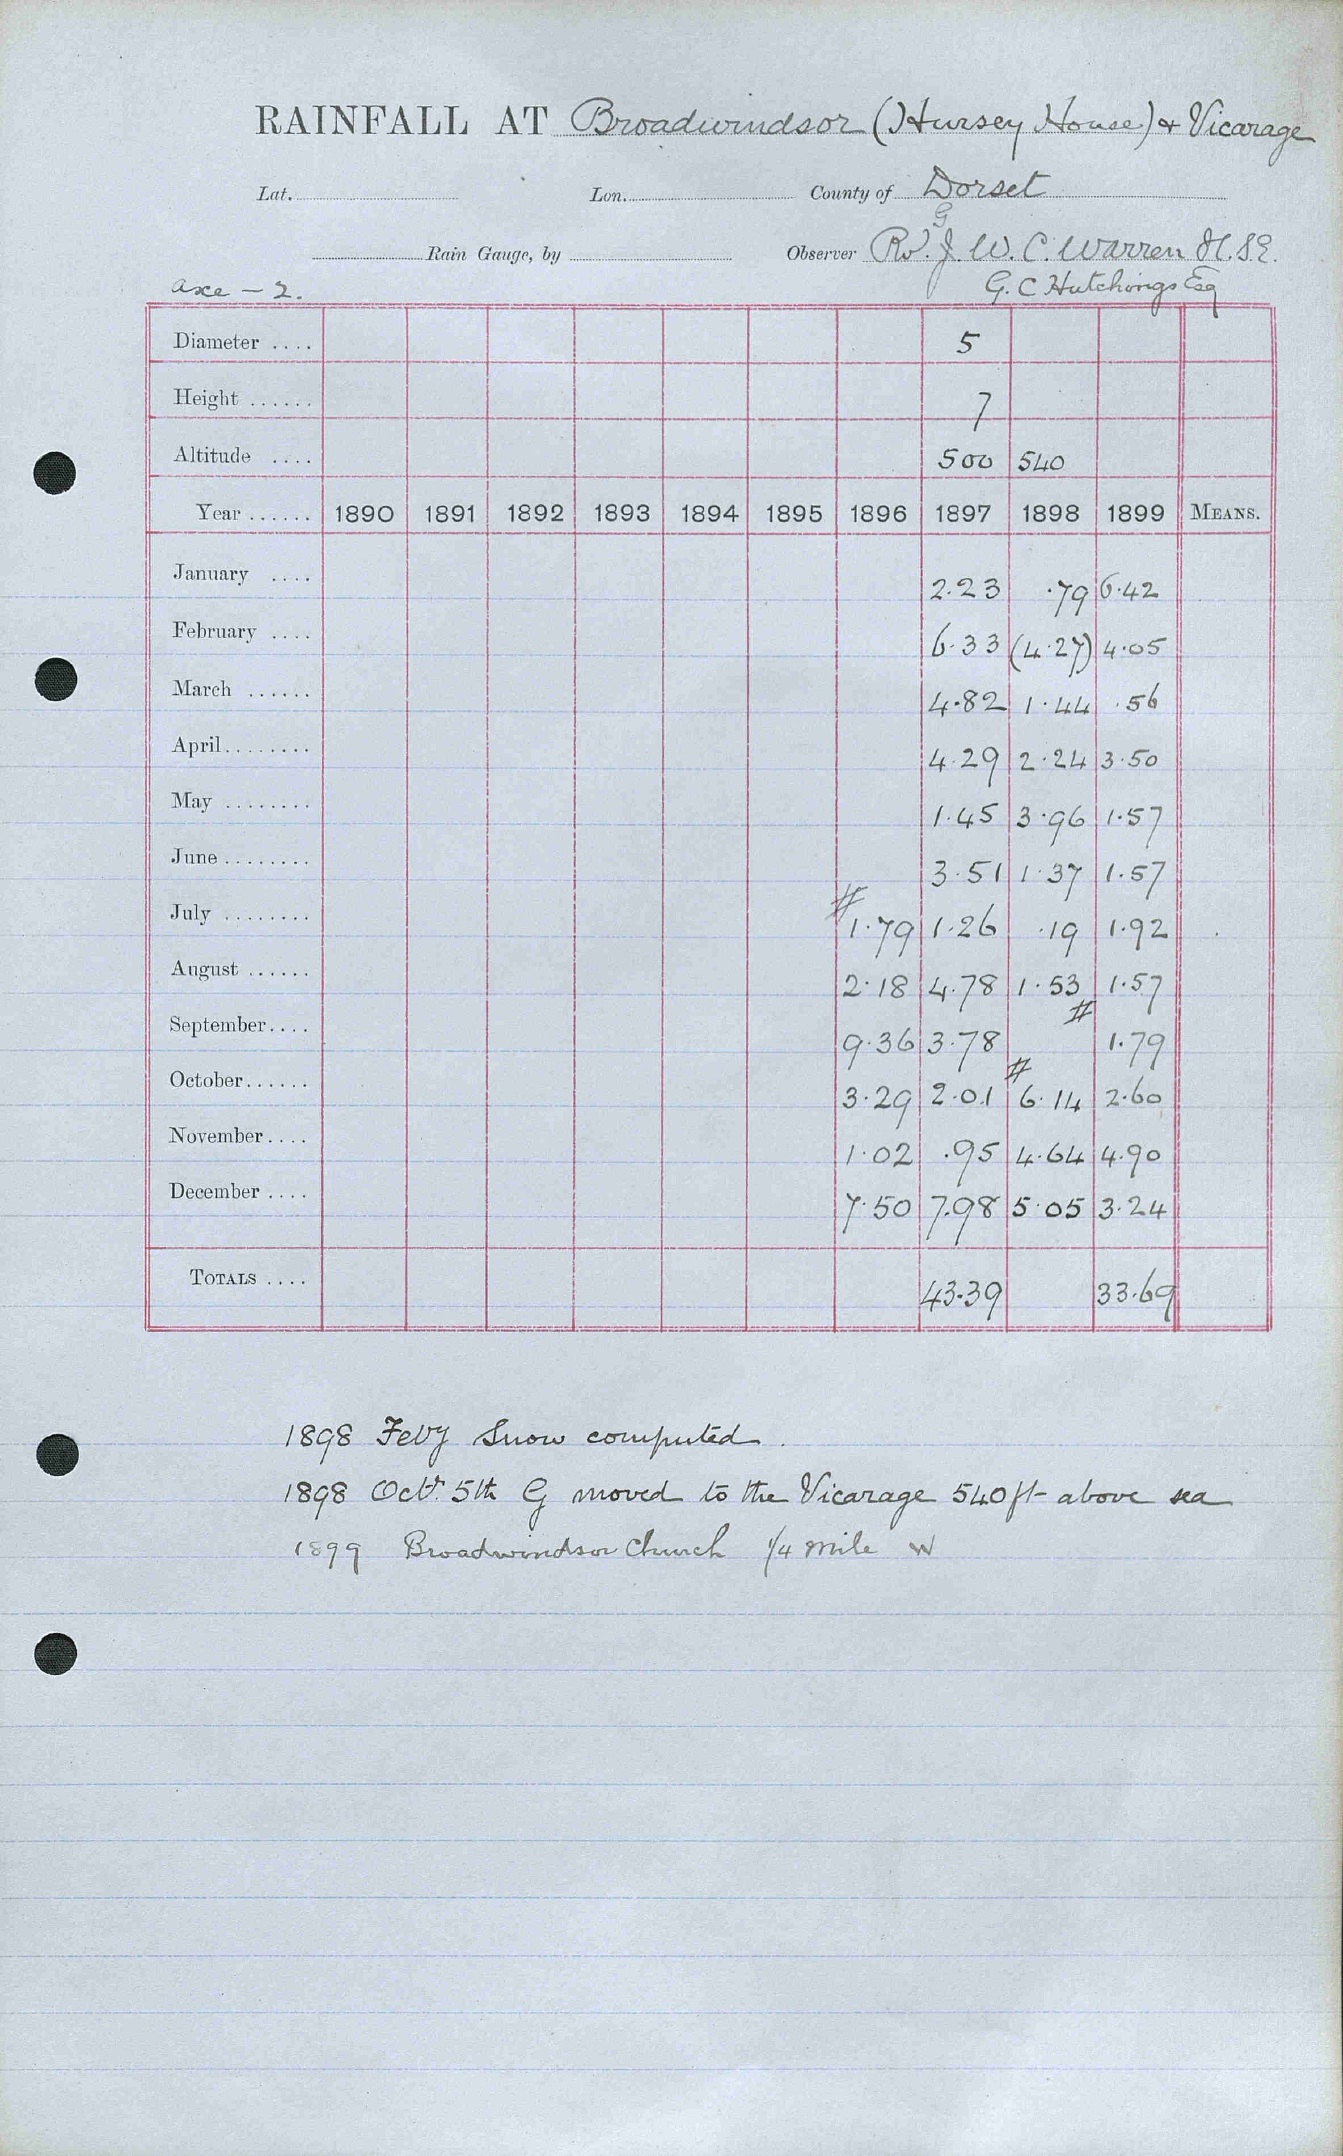 RAINFALL AT Broadwindsor (Hursey House) & Vicarage
Lat. Lon. County of Dorset
G
Rain Gauge, by Observer Rev. J. W. C. Warren
Axe - 2. G. C Hutchings Esq
Diameter .... 5
Height ...... 7
Altitude .... 500 540
Year ...... 1890 1891 1892 1893 1894 1895 1896 1897 1898 1899 MEANS.
January .... 2.23 .79 6.42
February .... 6.33 (4.27) 4.05
March ...... 4.82 1.44 .56
April ........ 4.29 2.24 3.50
May ........ 1.45 3.96 1.57
June ........ 3.51 1.37 1.57
July ........ # 1.79 1.26 .19 1.92
August ...... 2.18 4.78 1.53 1.57
September .... 9.36 3.78 # 1.79
October ...... 3.29 2.01 # 6.14 2.60
November .... 1.02 .95 4.64 4.90
December .... 7.50 7.98 5.05 3.24
TOTALS .... 43.39 33.69
1898 Feby Snow computed.
1898 Oct. 5th G moved to the Vicarage 540 ft above sea
1899 Broadwindsor Church 1/4 mile W